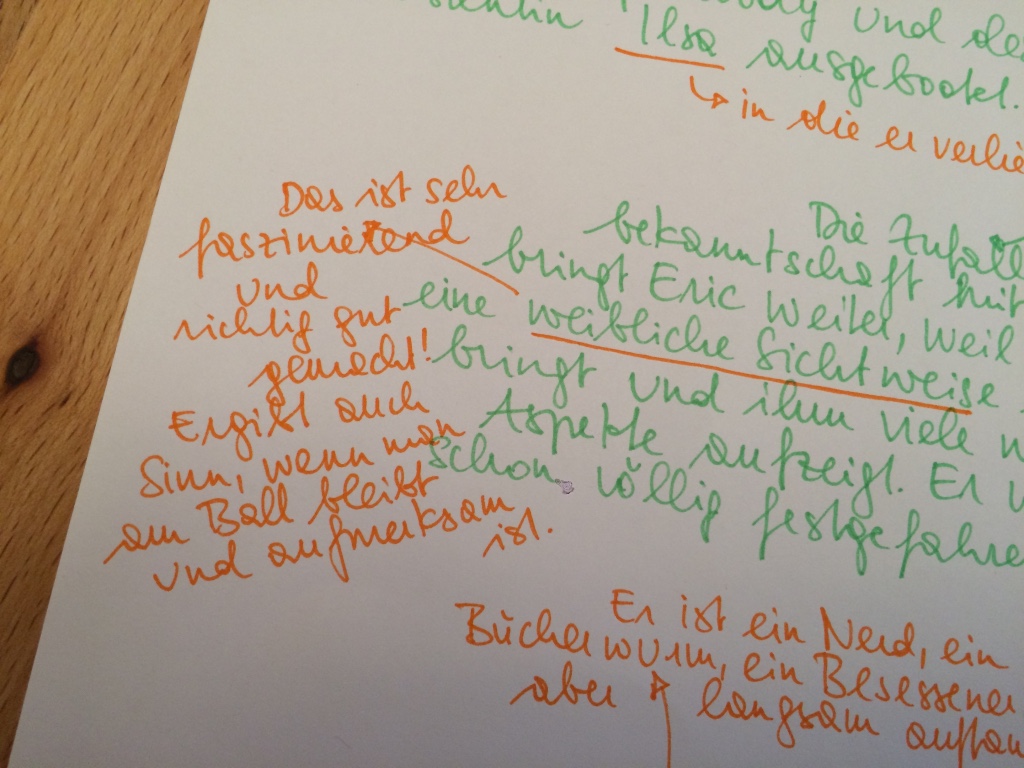 und
Ilsa ausgebootet.
in die er
Das ist sehr
faszinierend
und
richtig gut
gemacht!
Ergibt auch
Sinn, wenn man
am Ball bleibt
und aufmerksam
ist.
Die
bekanntschaft mit
bringt Eric weiter, weil
eine weibliche Sichtweise
bringt und ihm viele
Aspekte aufzeigt. Er
schon völlig
Er ist ein Nerd, ein
Bücherwurm, ein Besessener
aber langsam